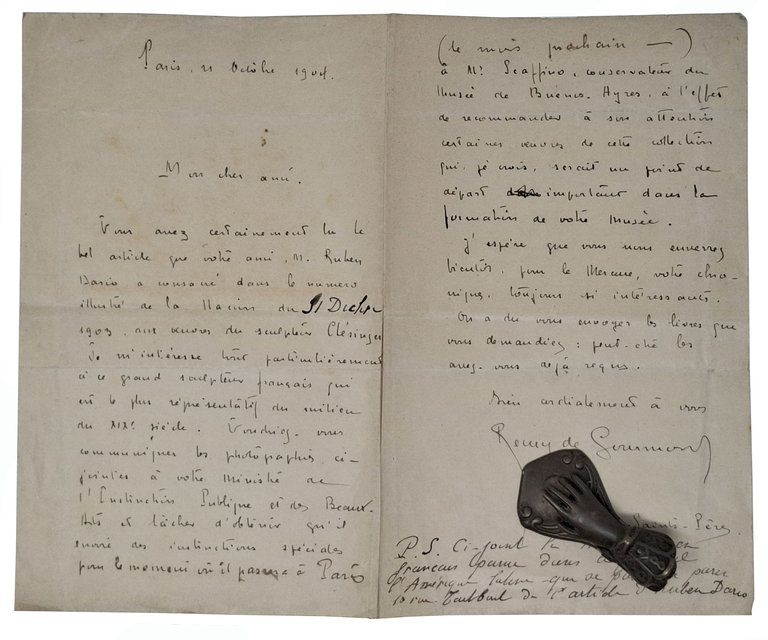 Paris, 21 Octobre 1904.
Mon cher ami.
Vous avez certainement lu le
bel article que votre ami, M. Ruben
Dario a consacré dans le numero
illustré de la Nacion du 31 Decbre
1903, aux œuvres du sculpteur Clésinger
Je m'intéresse tout particulièrement
à ce grand sculpteur français qui
est le plus représentatif du milieu
du XIXe siècle. Voudriez-vous
communiquer les photographies ci-
jointes à votre Ministre de
l'Instruction Publique et des Beaux-
Arts et tâcher d'obtenir qu'il
envoie des instructions spéciales
pour le moment où il passera à Paris
(le mois prochain —)
à Mr. conservateur du
Musée de Buenos-Ayres, à l'effet
de recommander à son attention
certaines œuvres de cette collection
qui, je crois, serait un point de
départ important dans la
formation de votre Musée.
J'espère que vous nous enverrez
bientôt, pour le Mercure, votre chro-
nique, toujours si intéressante.
On a du vous envoyer les livres que
vous demandiez : peut-être les
avez-vous déjà reçus.
Bien cordialement à vous
Remy de Gourmont
Saints-Pères
P.S. Ci-joint la en
français parue dans
l'Amérique Latine - que se
10 rue Taitbout de l'article Ruben Dario